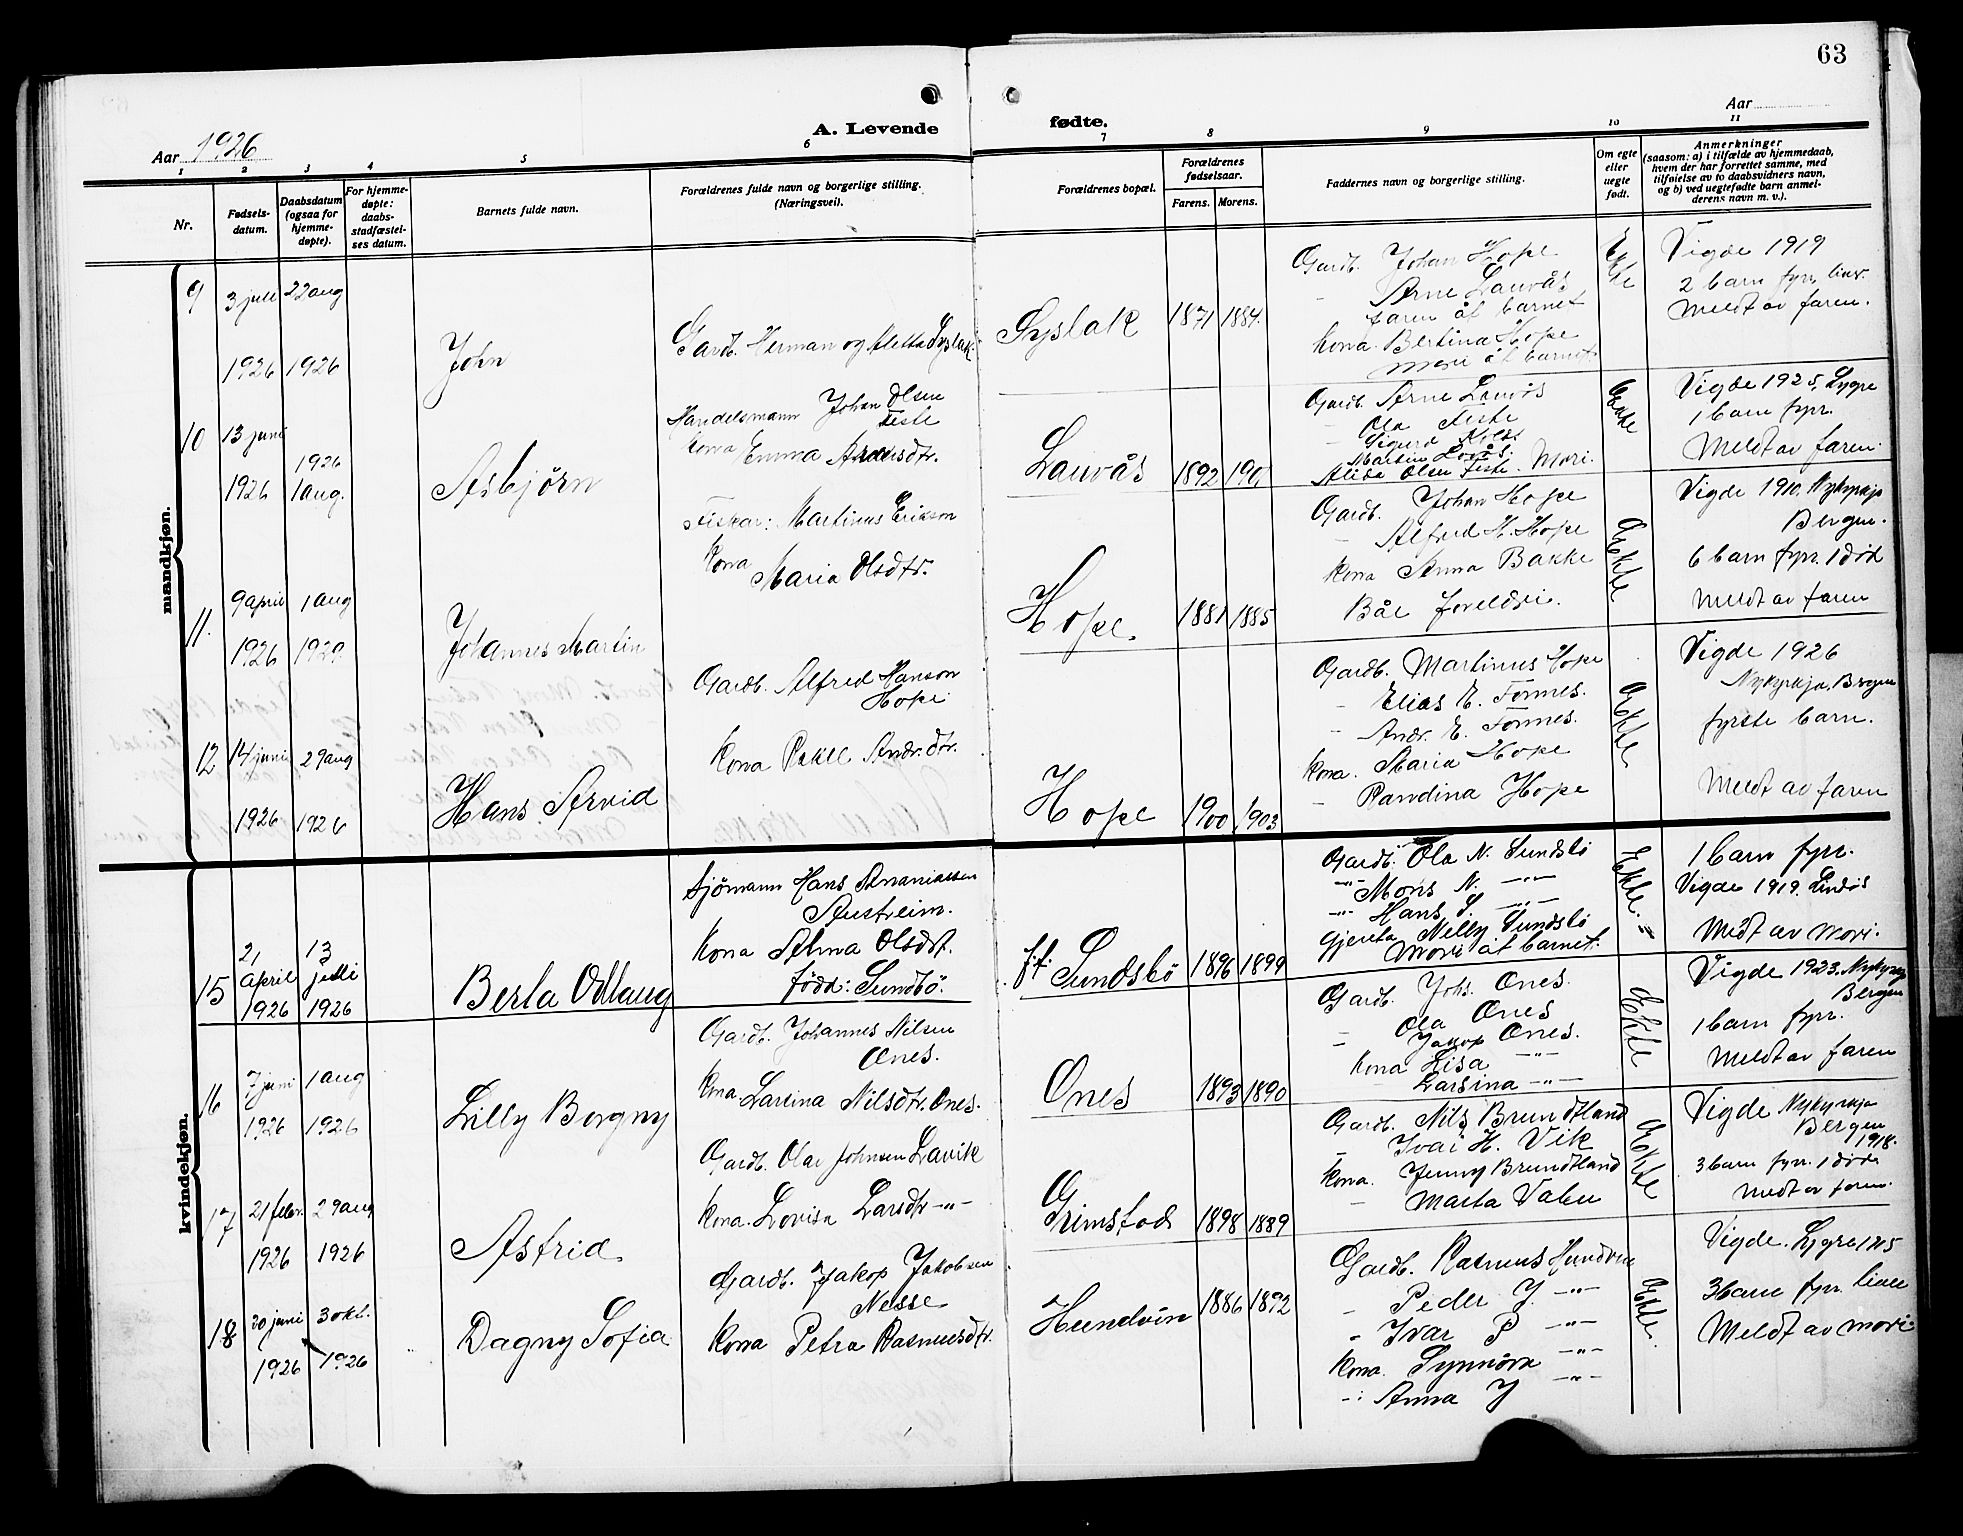 63
Aar 1926
A. Levende
fødte.
Aar
1
2
3
4
5
6
7
8
9
10
11
Nr.
Fødsels-
datum.
Daabsdatum
(ogsaa for
hjemme-
døpte).
For hjemme-
døpte:
daabs-
stadfæstel-
ses datum.
Barnets fulde navn.
Forældrenes fulde navn og borgerlige stilling.
(Næringsvei).
Forældrenes bopæl.
Forældrenes
fødselsaar.
Farens.
Morens.
Faddernes navn og borgerlige stilling.
Om egte
eller
uegte
født.
Anmerkninger
(saasom: a) i tilfælde av hjemmedaab,
hvem der har forrettet samme, med
tilføielse av to daabsvidners navn,
og b) ved uegtefødte barn anmel-
derens navn m. v.).
mandkjøn.
9
3 juli
1926
22 aug
1926
John
Gardb. Herman og Aletta Syslak
Syslak
1871
1884.
Gardb. Johan Hope
Arne Lauvås
faren åt barnet
Kona Bertina Hope
mori åt barnet
Ekte
Vigde 1919
2 barn fyrr, liv.
Meldt av faren.
10
13 juni
1926
1926
1 aug.
Asbjørn
Handelsmann Johan Olsen
Feste
Kona Emma
Lauvås
1892
190
Gardb. Arne Lauvås
Ola Feste
Sigurd
Martin Lovås.
Olsen Feste. Mori.
Ekte
Vigde 1925, Lygre
1 barn fyrr.
Meldt av faren.
11.
9 april
1926
1 aug
192
Johannes Martin
Fiskar: Martinus Erikson
Kona
Maria Olsdtr.
Hope.
1881
1885
Gardb. Johan Hope
Alfred H. Hope
Kona Anna Bakke
Båe foreldri.
Ekte
Vigde 1910. Nykyrkja
Bergen.
6 barn fyrr. 1 død
Meldt av faren
12
14 juni
1926
29 aug
1926
Hans Arvid
Gardb. Alfred Hanson
Hope
Kona Rakel Andr. dtr.
Hope
1900
1903
Gardb. Martinus Hope
Elias E. Fonnes.
Andr. E. Fonnes.
Kona. Maria Hope
Randina Hope
Ekte
Vigde 1926
Nykyrkja, Bergen
fyrste barn.
Meldt av faren
kvindekjøn.
15
21
april
1926
13
juli
1926
Berla Odlaug
Sjömann Hans Ananiassen
Austreim.
Kona Alma Olsdt.
född: Sundbö.
f.f. Sundsbö
1896
1899
Gardb. Ola N. Sundsbö
-"- Mons N. -"-
-"- Hans S. -"-
Gjenta Nelly Sundsbö
Mori åt barnet.
Ekte.
1 barn fyrr.
Vigde 1919. Lindås
Meldt av mori.
16
7 juni
1926
1 aug
1926
Lilly Borgny
Gardb. Johannes Nilsen
Ones.
Kona. Larsina Nilsdtr. Ones.
Ones
1893
1890
Gardb. Johs. Ones.
Ola Ones
Jakop Ones.
Kona Lisa -"-
Larsina -"-
Ekte
Vigde 1923. Nykyrkja
Bergen
1 barn fyrr.
Meldt av faren
17
21 febr.
1926
29 aug
1926
Astrid
Gardb. Olai Johnsen Lavik
Kona. Lovisa Larsdtr -"-
Grimstad
1898
1889
Gardb. Nils Brundtland
Ivar H. Vik
Kona. Jenny Brundtland
Marta Valen
Ekte
Vigde Nykyrkja
Bergen
1918.
3 barn fyrr. 1 död
Meldt av faren.
18
20 juni
1926
3 okt.
1926
Dagny Sofia
Gardb. Jakop Jakobsen
Nesse
Kona Petra Rasmusdtr.
Hundvin
1886
1892
Gardb. Rasmus Hundvin
Peder J. -"-
Ivar P -"-
Kona. Synnöva -"-
-"- Anna J -"-
Ekte.
Vigde. Lygre
3 barn fyrr. live
Meldt av mori